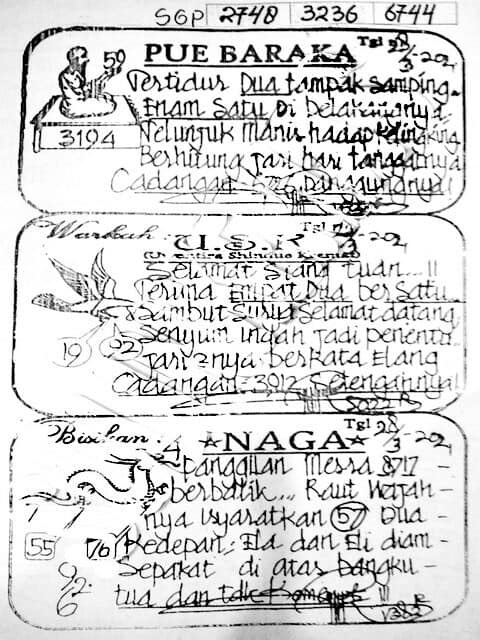 SGP 2748 3236 6744
PUE BARAKA
Tgl 28/3-202
59
Tertidur Dua tampak samping
Enam Satu Di belakangnya
3194
Telunjuk Manis hadap kelingking
Berhitung Jari hari tanggalnya
Cadangan
Warkah :
U.S.K
Tgl
-202
Selamat Siang tuan...!!
Terima Empat Dua ber Satu
Sambut Surya Selamat datang
Senyum indah Jadi penentu
19 92
Jari 2nya berkata Elang
Cadangan 3912 Setengahnya!
Bisikan :
NAGA
Tgl 28/3-202
4
panggilan Mesra 8717 -
berbalik... Raut Wajah -
nya isyaratkan 57 Dua -
55 76
Kedepan. Ela dan Eli diam -
9/2.6
Sepakat di atas bangku -
tua dan tdk !!